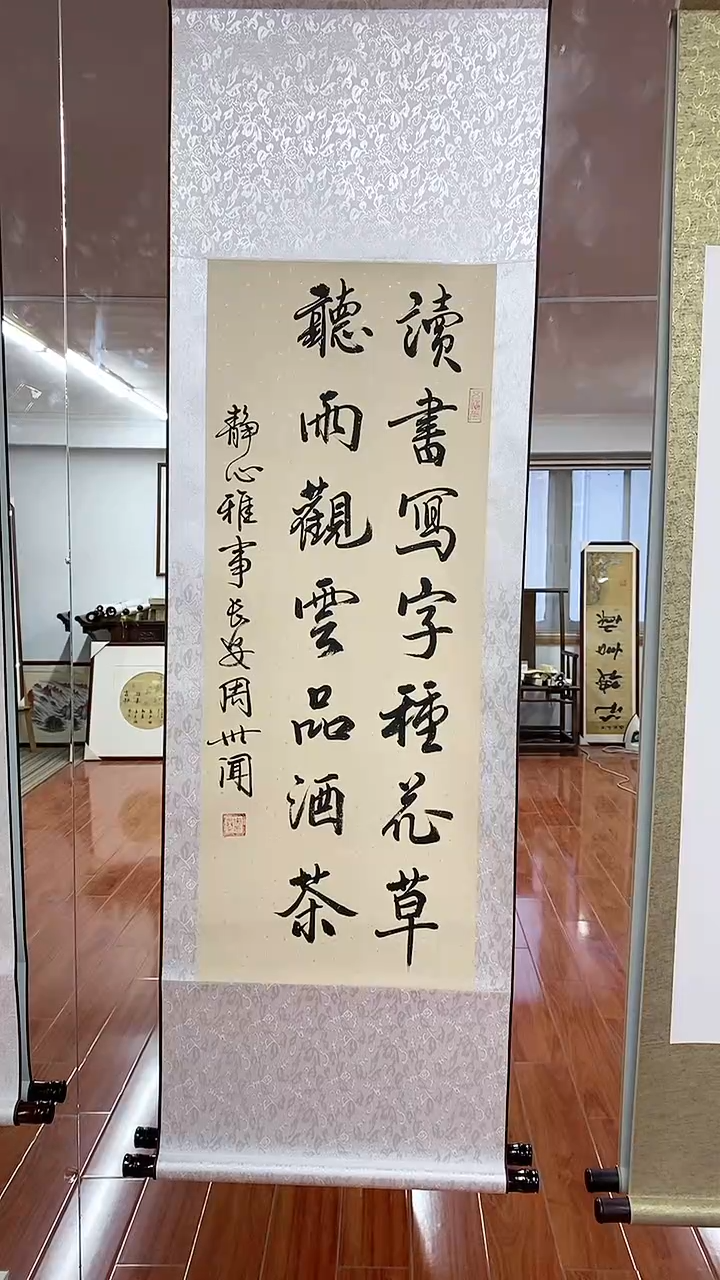 讀書寫字種花草
聽雨觀雲品酒茶
静心雅事长安周世闻